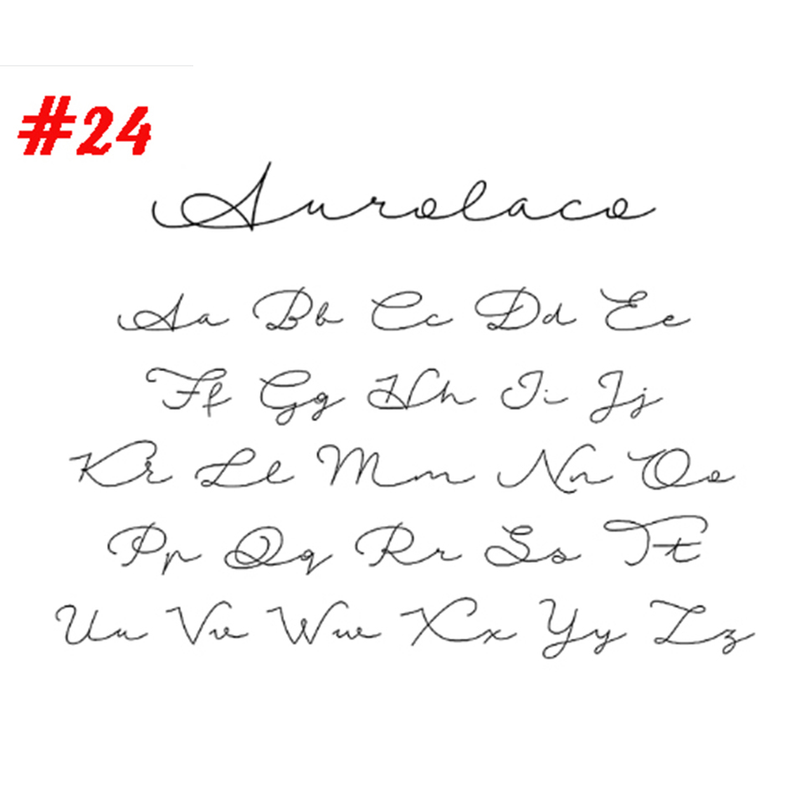 #24
Aurolaco
Aa Bb Cc Dd Ee
Ff Gg Hh Ii Jj
Kk Ll Mm Nn Oo
Pp Qq Rr Ss Tt
Uu Vv Ww Xx Yy Zz